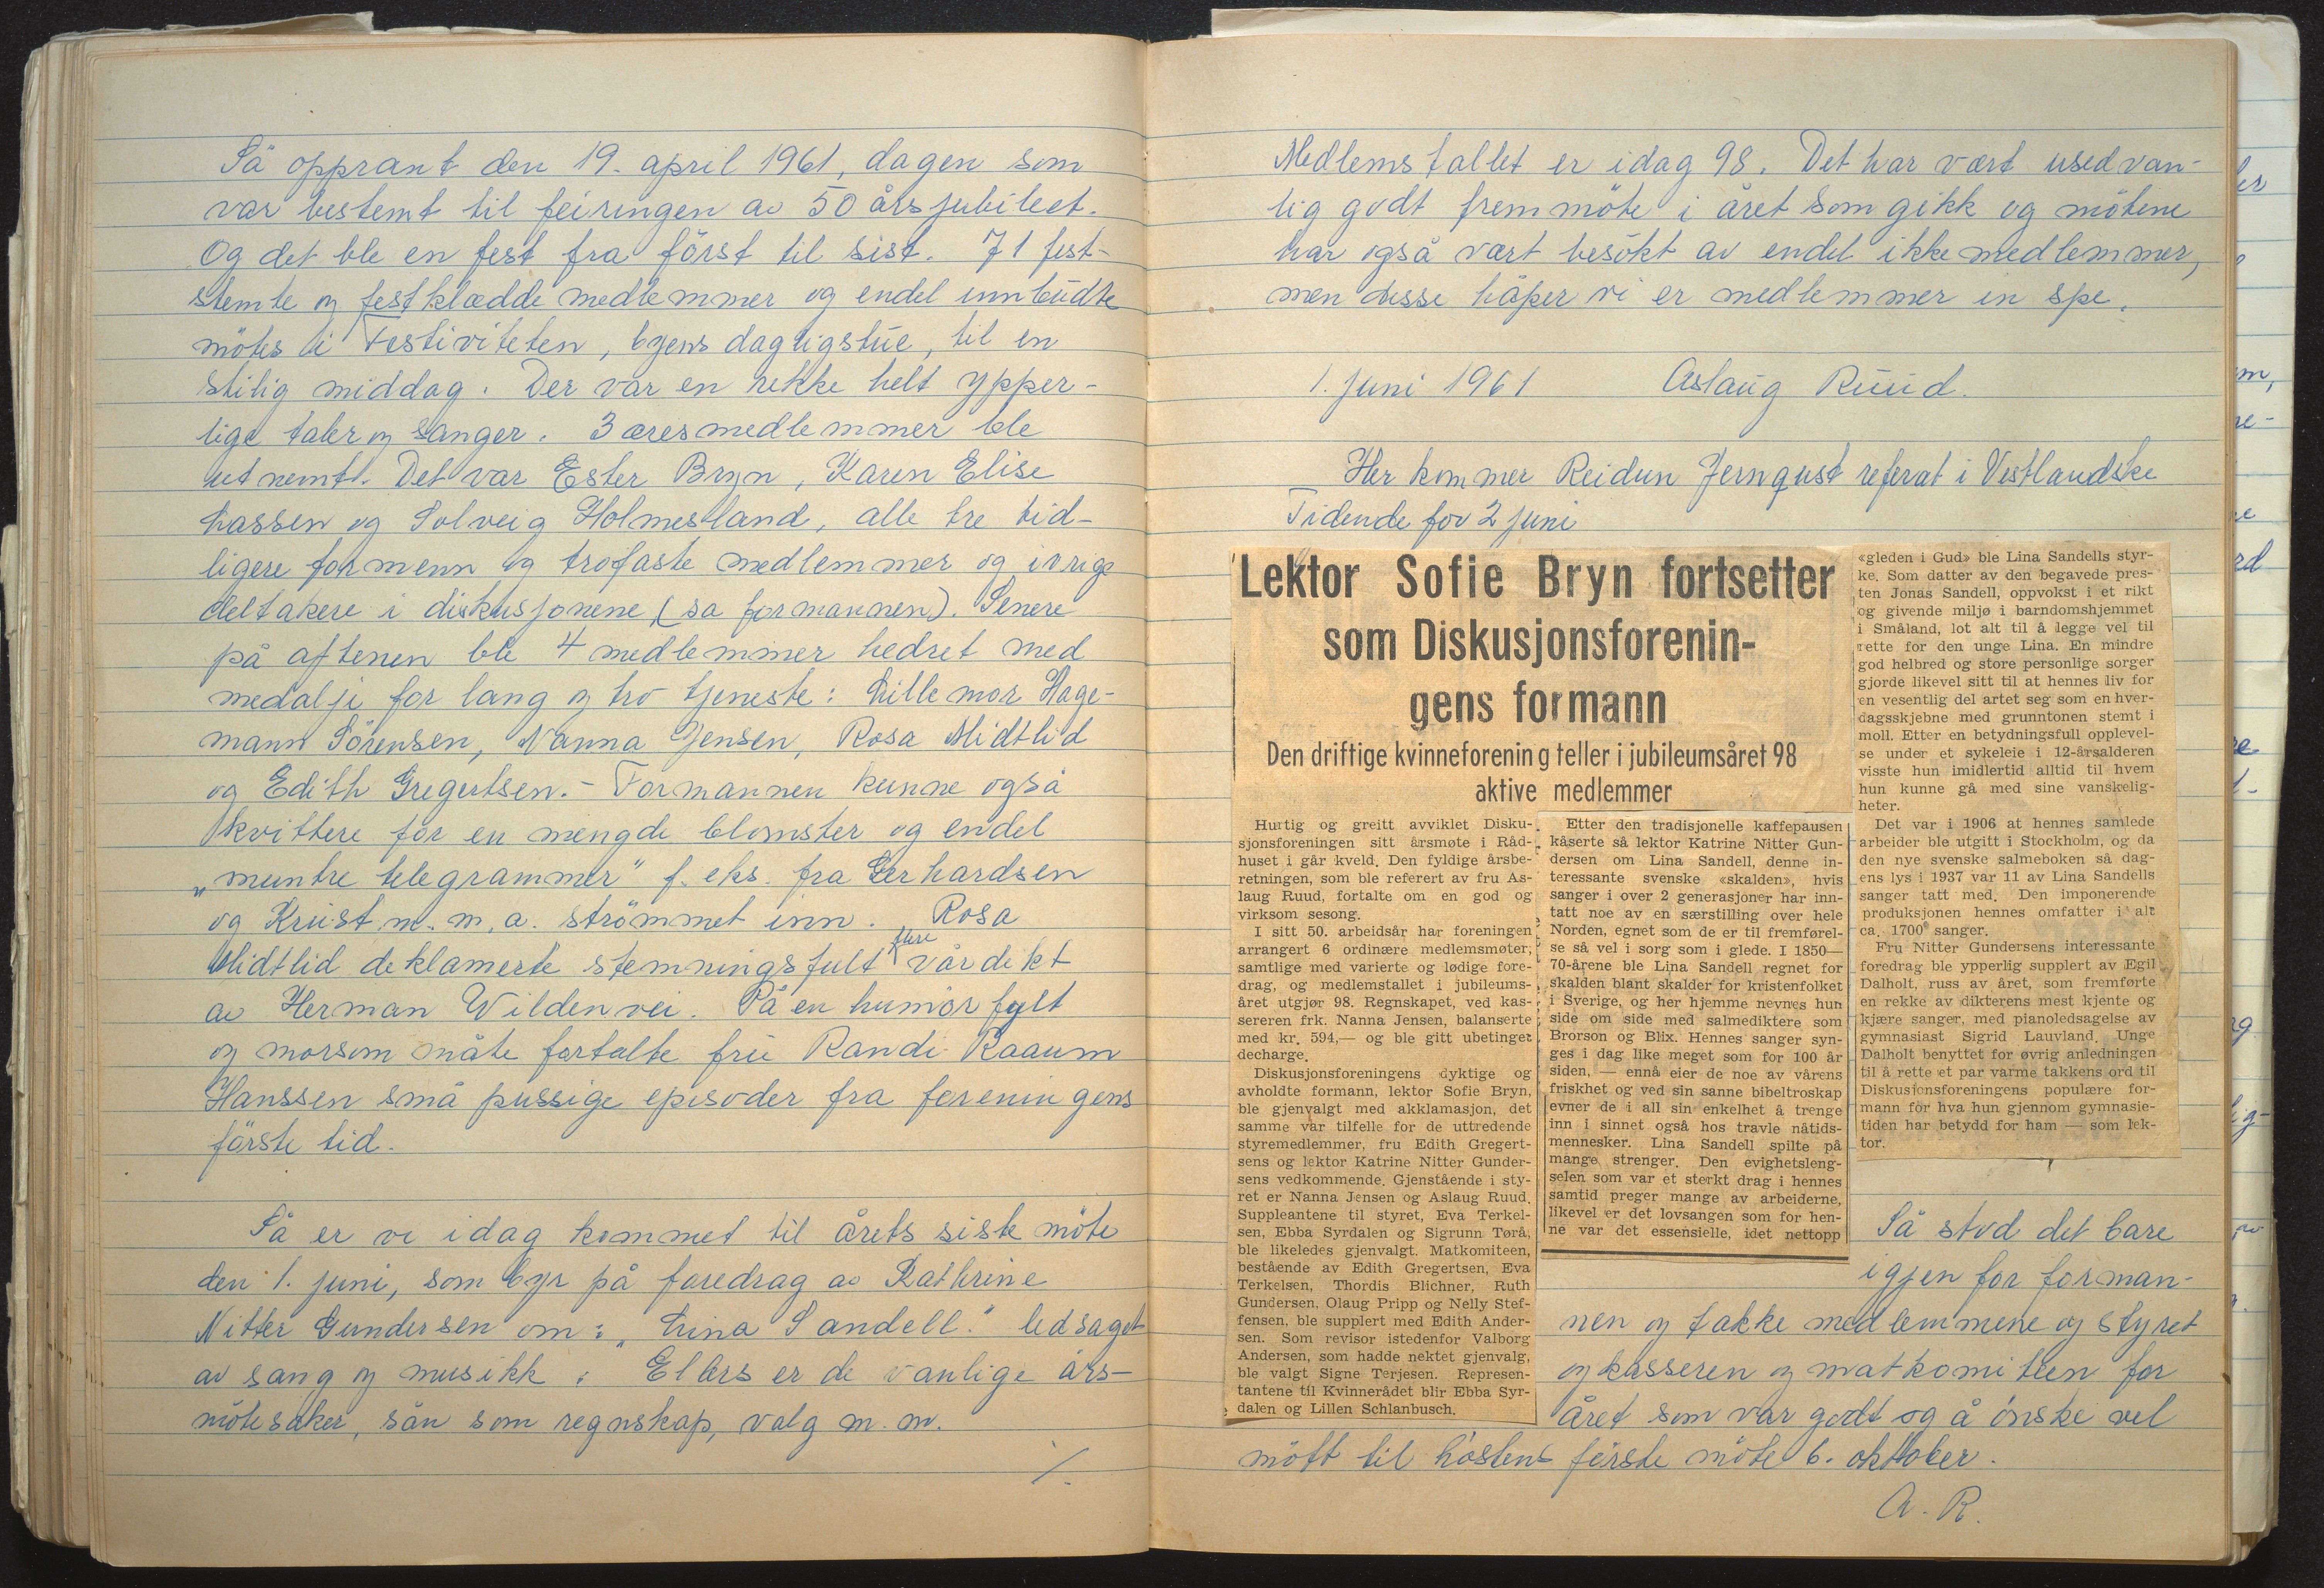 Så opprant den 19. april 1961, dagen som
var bestemt til feiringen av 50 årsjubileet.
Og det ble en fest fra först til sist. 71 fest-
stemte og festklædde medlemmer og endel innbudte
möttes i Festiviteten, byens dagligstue, til en
stilig middag. Der var en rekke helt ypper-
lige taler og sanger. 3 æresmedlemmer ble
utnemt. Det var Ester Bryn, Karen Elise
Lassen og Solveig Holmesland, alle tre tid-
ligere formenn og trofaste medlemmer og ivrige
deltakere i diskusjonene (sa formannen). Senere
på aftenen ble 4 medlemmer hedret med
medalje for lang og tro tjeneste: Lillemor Hage-
mann Sörensen, Nanna Jensen, Rosa Midtlid
og Edith Gregertsen. - Formannen kunne også
kvittere for en mengde blomster og endel
„muntre telegrammer" f. eks. fra Gerhardsen
og Krust. m. m. a. strömmet inn. Rosa
Midtlid deklamerte stemningsfult flere vårdikt
av Herman Wildenvei. På en humörfylt
og morsom måte fortalte fru Randi Raaum
Hanssen små pussige episoder fra foreningens
förste tid.
Så er vi idag kommet til årets siste möte
den 1. juni, som byr på foredrag av Kathrine
Nitter Gundersen om: „Lina Sandell." ledsaget
av sang og musikk. Ellers er de vanlige års-
mötesaker, sån som regnskap, valg m. m.
./.
Medlemstallet er idag 98. Det har vært usedvan-
lig godt fremmöte i året som gikk og mötene
har også vært besökt av endel ikke medlemmer,
men disse håper vi er medlemmer in spe.
1. juni 1961 Aslaug Ruud.
Her kommer Reidun Jernqust referat i Vestlandske
Tidende for 2 juni
Lektor Sofie Bryn fortsetter
som Diskusjonsforenin-
gens formann
Den driftige kvinneforening teller i jubileumsåret 98
aktive medlemmer
Hurtig og greitt avviklet Disku-
sjonsforeningen sitt årsmøte i Råd-
huset i går kveld. Den fyldige årsbe-
retningen, som ble referert av fru As-
laug Ruud, fortalte om en god og
virksom sesong.
I sitt 50. arbeidsår har foreningen
arrangert 6 ordinære medlemsmøter,
samtlige med varierte og lødige fore-
drag, og medlemstallet i jubileums-
året utgjør 98. Regnskapet, ved kas-
sereren frk. Nanna Jensen, balanserte
med kr. 594,— og ble gitt ubetinget
decharge.
Diskusjonsforeningens dyktige og
avholdte formann, lektor Sofie Bryn,
ble gjenvalgt med akklamasjon, det
samme var tilfelle for de uttredende
styremedlemmer, fru Edith Gregert-
sens og lektor Katrine Nitter Gunder-
sens vedkommende. Gjenstående i sty-
ret er Nanna Jensen og Aslaug Ruud.
Suppleantene til styret, Eva Terkel-
sen, Ebba Syrdalen og Sigrunn Tørå,
ble likeledes gjenvalgt. Matkomiteen,
bestående av Edith Gregertsen, Eva
Terkelsen, Thordis Blichner, Ruth
Gundersen, Olaug Pripp og Nelly Stef-
fensen, ble supplert med Edith Ander-
sen. Som revisor istedenfor Valborg
Andersen, som hadde nektet gjenvalg,
ble valgt Signe Terjesen. Represen-
tantene til Kvinnerådet blir Ebba Syr-
dalen og Lillen Schlanbusch.
Etter den tradisjonelle kaffepausen
kåserte så lektor Katrine Nitter Gun-
dersen om Lina Sandell, denne in-
teressante svenske «skalden», hvis
sanger i over 2 generasjoner har inn-
tatt noe av en særstilling over hele
Norden, egnet som de er til fremførel-
se så vel i sorg som i glede. I 1850—
70-årene ble Lina Sandell regnet for
skalden blant skalder for kristenfolket
i Sverige, og her hjemme nevnes hun
side om side med salmediktere som
Brorson og Blix. Hennes sanger syn-
ges i dag like meget som for 100 år
siden, — ennå eier de noe av vårens
friskhet og ved sin sanne bibeltroskap
evner de i all sin enkelhet å trenge
inn i sinnet også hos travle nåtids-
mennesker. Lina Sandell spilte på
mange strenger. Den evighetsleng-
selen som var et sterkt drag i hennes
samtid preger mange av arbeiderne,
likevel er det lovsangen som for hen-
ne var det essensielle, idet nettopp
«gleden i Gud» ble Lina Sandells styr-
ke. Som datter av den begavede pres-
ten Jonas Sandell, oppvokst i et rikt
og givende miljø i barndomshjemmet
i Småland, lot alt til å legge vel til
rette for den unge Lina. En mindre
god helbred og store personlige sorger
gjorde likevel sitt til at hennes liv for
en vesentlig del artet seg som en hver-
dagsskjebne med grunntonen stemt i
moll. Etter en betydningsfull opplevel-
se under et sykeleie i 12-årsalderen
visste hun imidlertid alltid til hvem
hun kunne gå med sine vanskelig-
heter.
Det var i 1906 at hennes samlede
arbeider ble utgitt i Stockholm, og da
den nye svenske salmeboken så dag-
ens lys i 1937 var 11 av Lina Sandells
sanger tatt med. Den imponerende
produksjonen hennes omfatter i alt
ca. 1700 sanger.
Fru Nitter Gundersens interessante
foredrag ble ypperlig supplert av Egil
Dalholt, russ av året, som fremførte
en rekke av dikterens mest kjente og
kjære sanger, med pianoledsagelse av
gymnasiast Sigrid Lauvland. Unge
Dalholt benyttet for øvrig anledningen
til å rette et par varme takkens ord til
Diskusjonsforeningens populære for-
mann for hva hun gjennom gymnasie-
tiden har betydd for ham — som lek-
tor.
Så stod det bare
igjen for forman-
nen og takke medlemmene og styret
og kasseren og matkomiteen for
året som var godt og å önske vel
mött til höstens förste möte 6. oktober.
A. R.